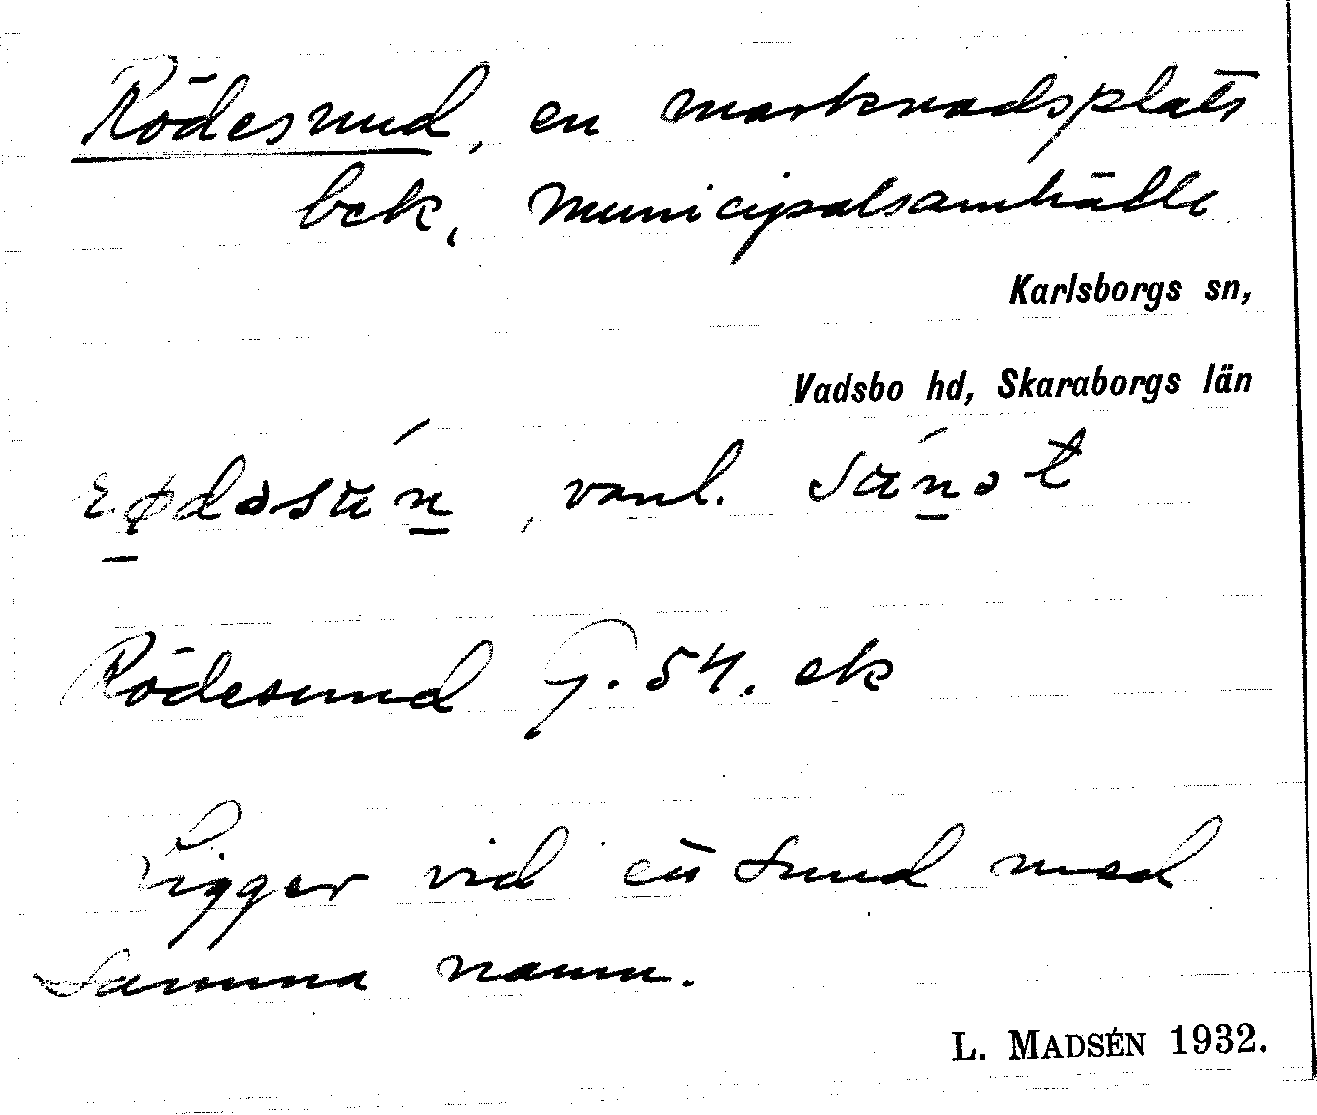 Rödesund, en marknadsplats
bek, Municipalsamhälle
Karlsborgs sn,
Vadsbo hd, Skaraborgs län
vanl.
Rödesund G. 54. ek
Ligger vid ett sund med
samma namn.
L. MADSÉN 1932.